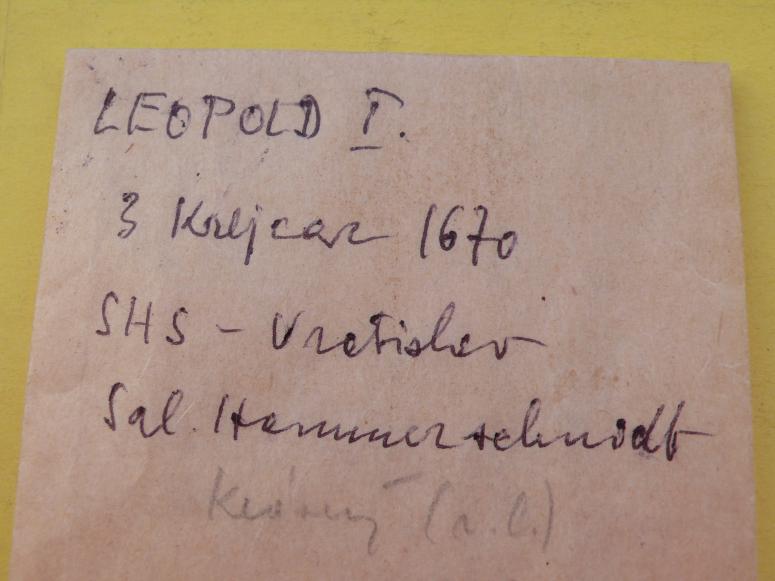 LEOPOLD I.
3 Krejcar 1670
SHS - Vratislav
Sal. Hammerschmidt
Krásný (r. l.)